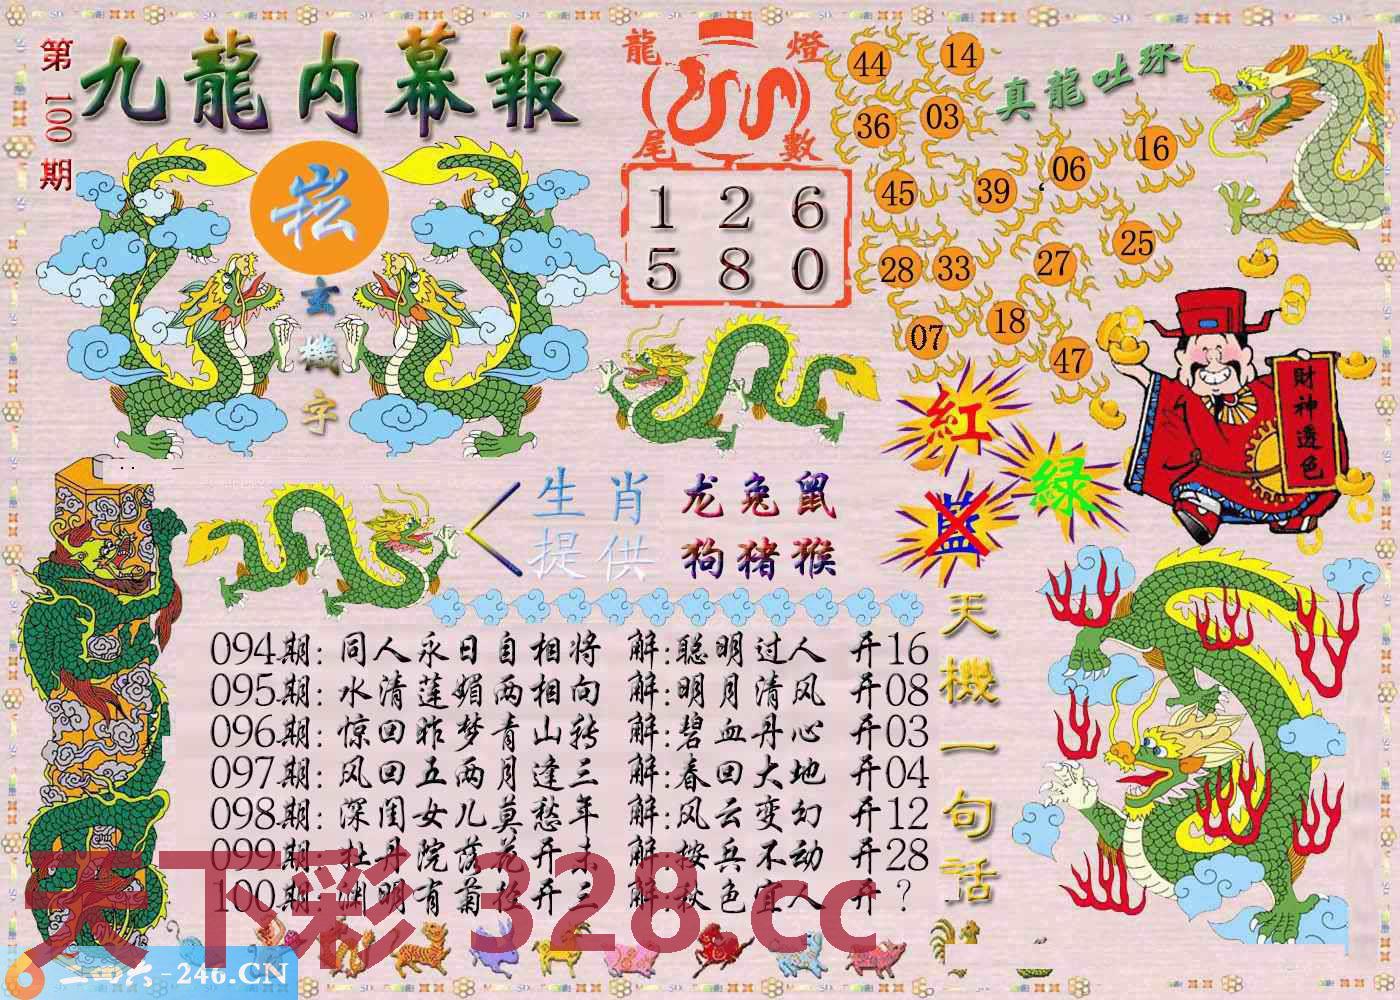 第100期
九龍内幕報
崧
玄機字
龍燈
尾數
1 2 6
5 8 0
真龍吐珠
44 14
36 03
45 39 06 16
28 33 27 25
07 18 47
財神透色
紅
绿
蓝
生肖提供
龙兔鼠
狗猪猴
094期:同人永日自相将 解:聪明过人 开16
095期:水清莲媚两相向 解:明月清风 开08
096期:惊回昨梦青山转 解:碧血丹心 开03
097期:风回五两月逢三 解:春回大地 开04
098期:深闺女儿莫愁年 解:风云变幻 开12
099期:牡丹院落花开未 解:按兵不动 开28
100期:渊明有菊松开三 解:秋色宜人 开?
天機一句話
天下彩 328.cc
二四六-246.CN